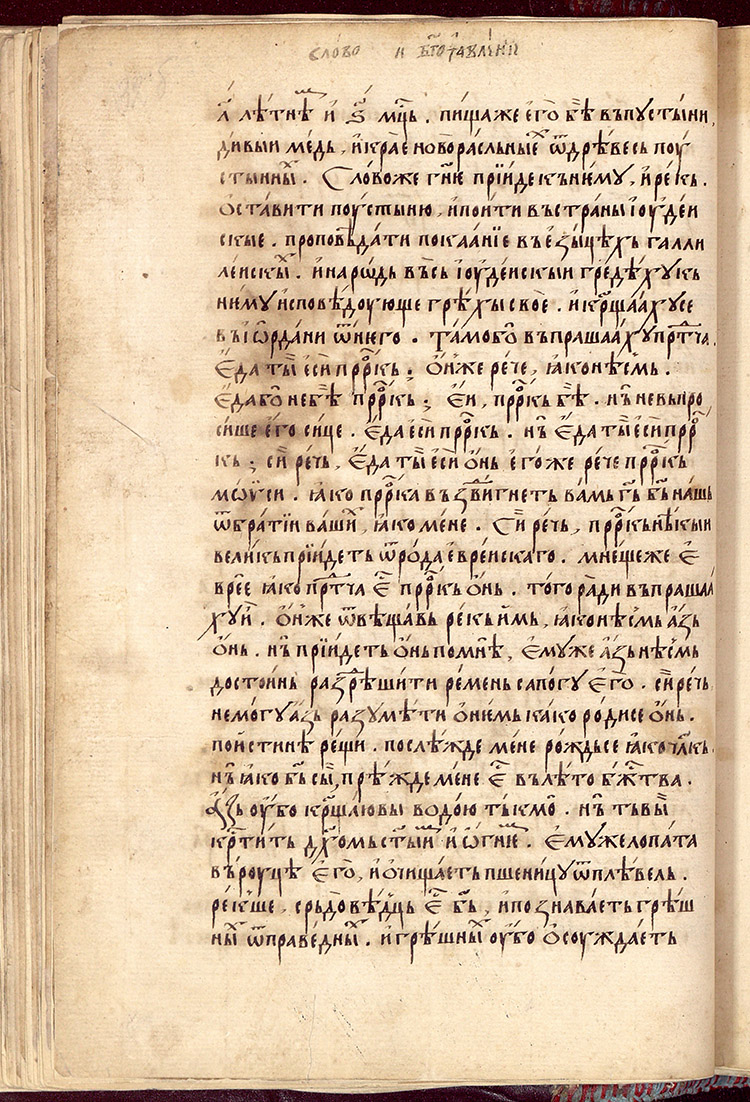 слово н бг҃оꙗвлѣнїи
л҃ лѣтнѣ и ѕ҃ мц҃ь. пища же его бѣ въ пустыни,
дивыи медь, и крае новораслъные ѿ дрѣвесь поу
стынны. Слово же гн҃ѥ прїиде къ нѥму, и рекь.
оставити поустыню, и поити въ страны їоудеи
скые. проповѣдати покааніе въ езыцѣхь галли
леискы. и народь въсь їоудеискыи гредѣху къ
нѥму исповѣдоующе грѣхы своѥ. и кр҃щаахусе
въ їѡрдани ѿ нѥго. тамо бо въпрашааху прт҃ча.
Еда ты еси прр҃кь; ѡн же рече, ꙗко нѣсмь.
Еда бо не бѣ прр҃кь; Еи, прр҃кь бѣ. нь не въпро
сише его сице. Еда еси прр҃кь. нь Еда ты еси прр҃
кь; сирѣчь, Еда ты еси онь егоже рече прр҃кь
мѡѵси. ꙗко прр҃ка въздвигнеть вамь гь҃ бь҃ нашь
ѿ братїи ваши, ꙗко мене. Сирѣчь, прр҃кь нѣкыи
великь прїидеть ѿ рода евреискаго. мнеще же Е
вреѥ ꙗко прт҃ча Е҃ прр҃кь онь. того ради въпрашаа
ху и. Он же ѿвѣщавь рекь имь, ꙗко нѣсмь азь
онь. нь прїидеть онь по мнѣ, ѥмуже азь нѣсмь
достоинь раздрѣшити ремень сапогу Его. сирѣчь
не могу азь разумѣти о нѥмь како родисе онь.
поистинѣ рещи. послѣжде мене рождьсе ꙗко чл҃кь.
нь ꙗко бь҃ сы, прѣжде мене Е҃ въ лѣто бж҃тва.
Азь оубо кр҃щаю вы водою тькмо. нь тъ вы
кр҃тить дх҃омь ст҃ыи и ѡгнѥ. Ѥмуже лопата
въ роуцѣ Его, и очищаеть пшеницу ѿ плѣвель.
рекше, срьдовѣдць Е҃ бь҃, и познаваѥть грѣш
ны ѿ праведны. и грѣшны оубо осоуждаѥть